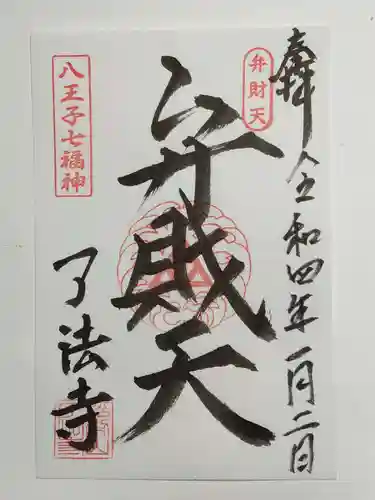 奉拝
令和四年一月二日
弁財天
弁財天
八王子七福神
了法寺